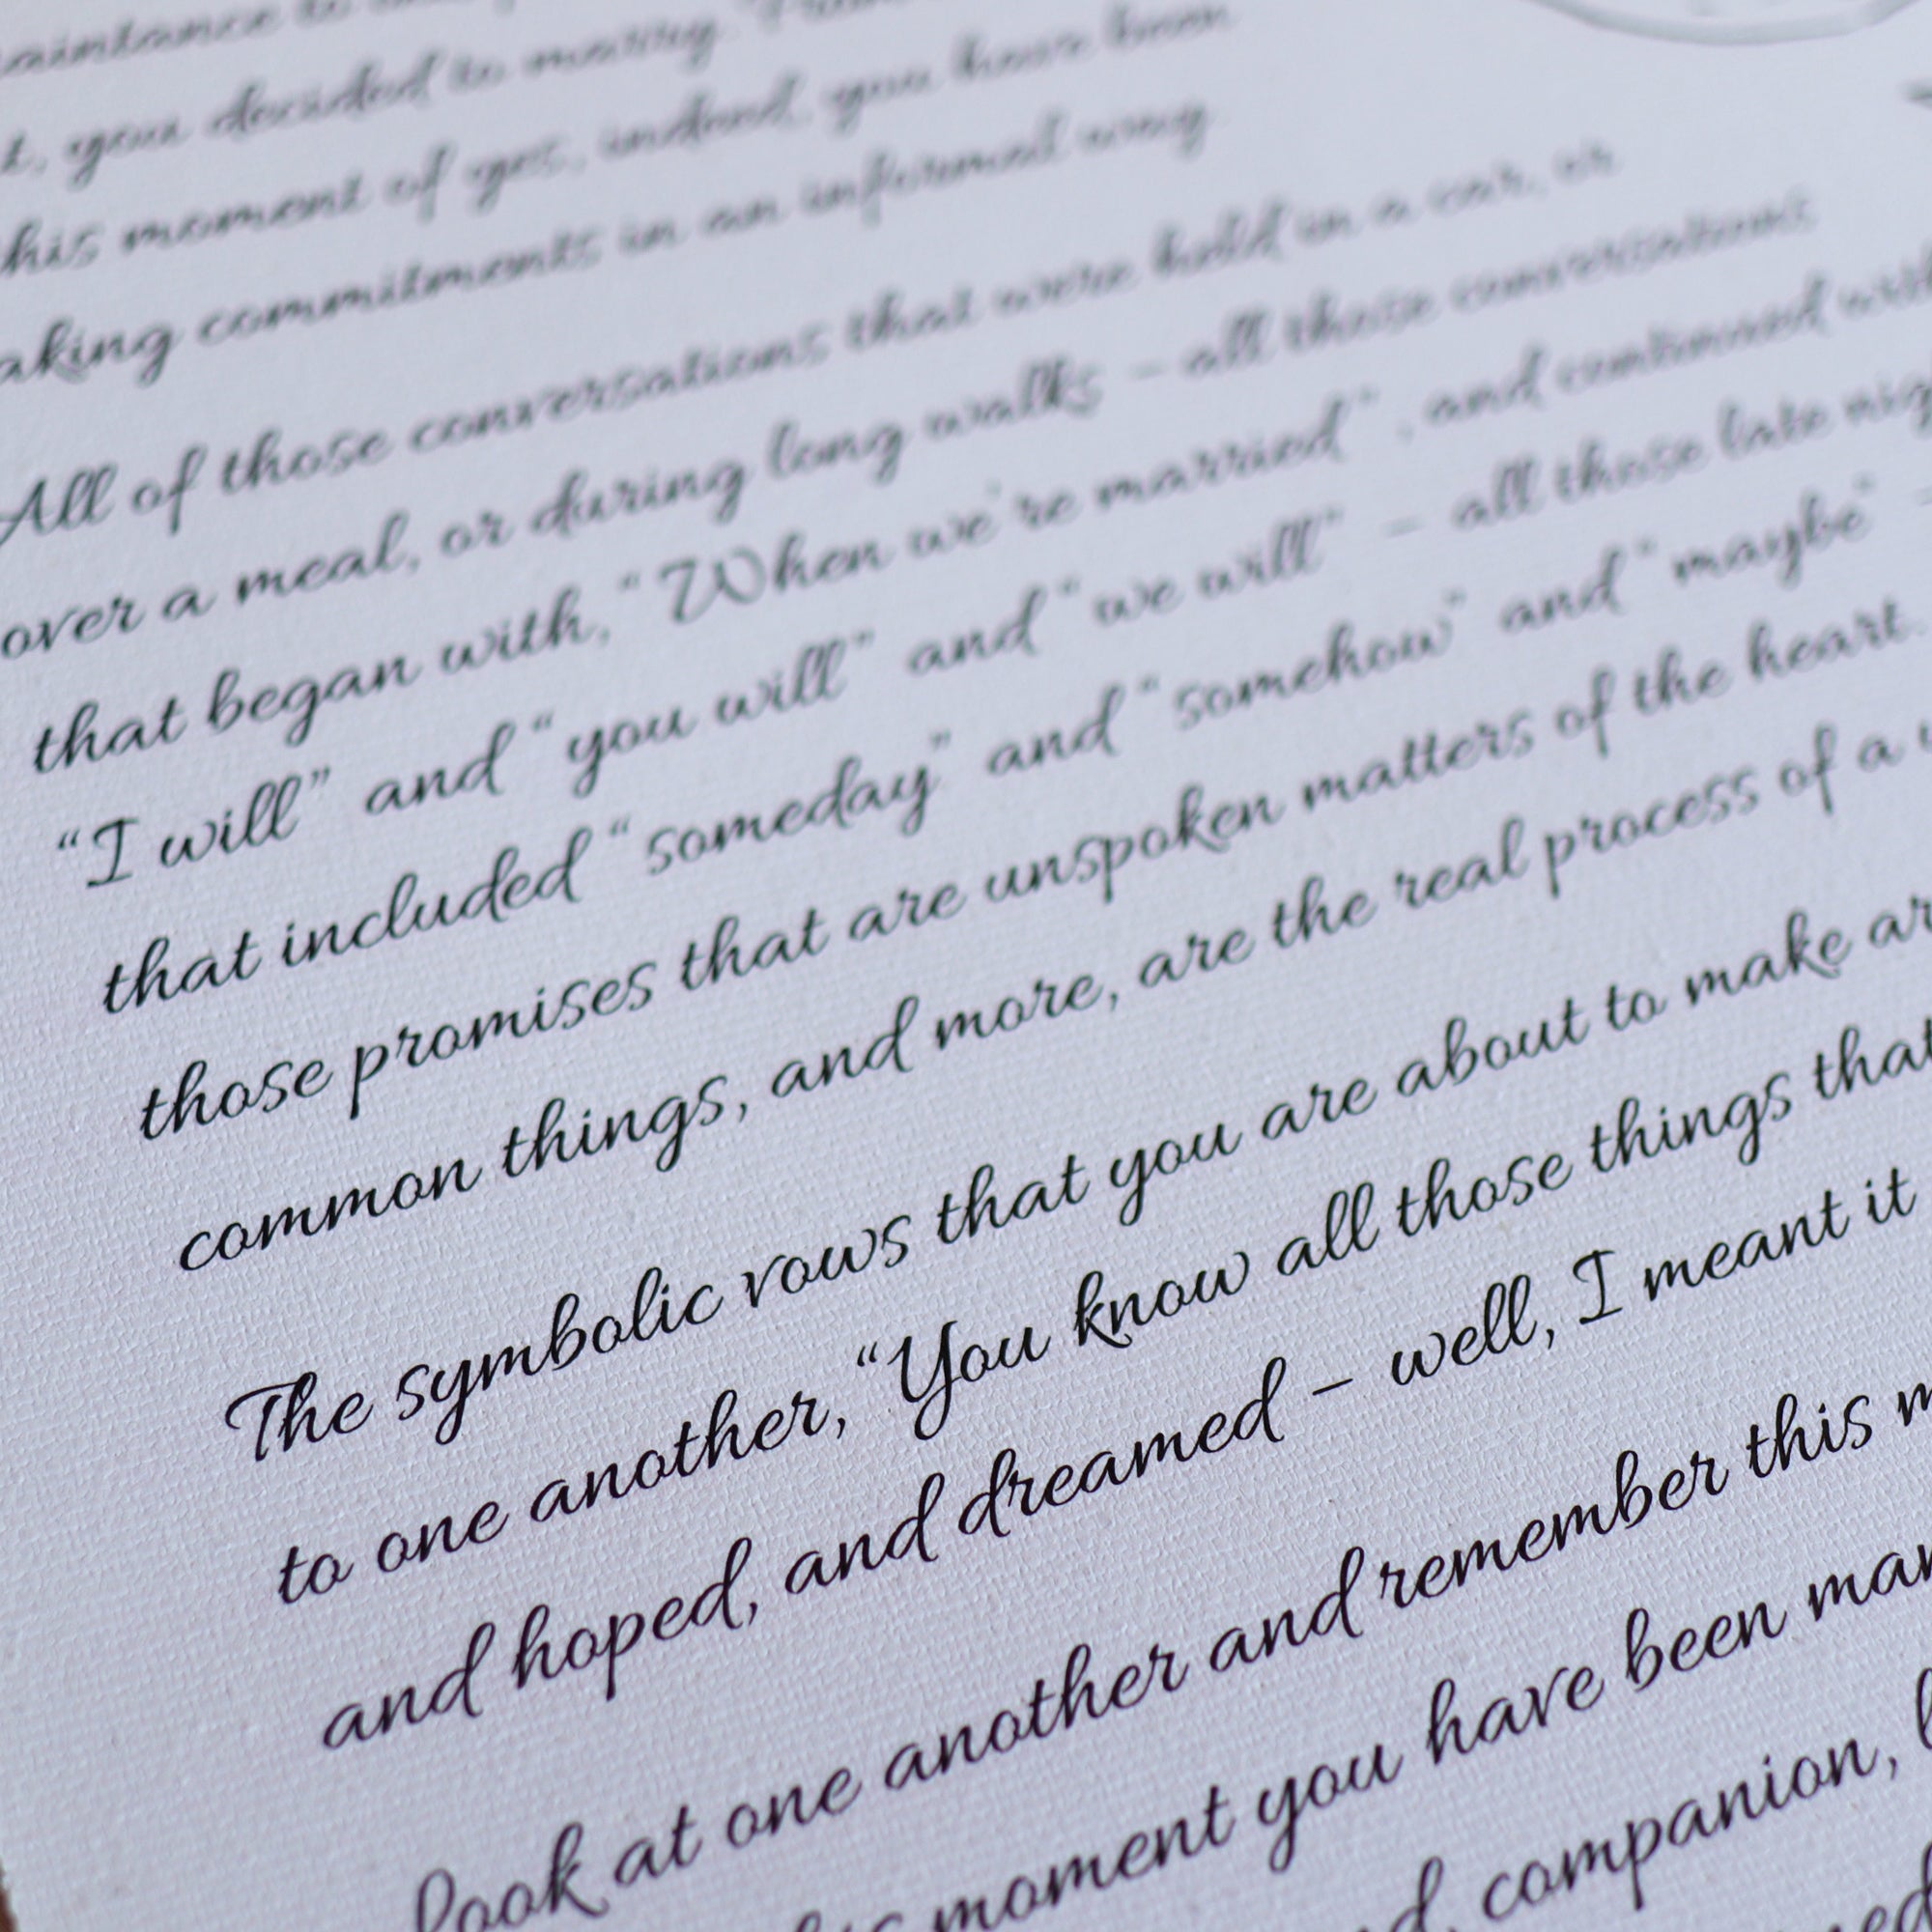 to
t, you decided to marry.
this moment of yes, indeed, you have been
aking commitments in an informal way.
All of those conversations that were held in a car, or
over a meal, or during long walks – all those conversations
that began with, “When we're married”, and continued with
“I will” and “you will” and “we will” – all those late nig
that included “someday” and “somehow” and “maybe”
those promises that are unspoken matters of the heart.
common things, and more, are the real process of a
The symbolic vows that you are about to make ar
to one another, “You know all those things that
and hoped, and dreamed – well, I meant it
look at one another and remember this m
moment you have been mar
companion,